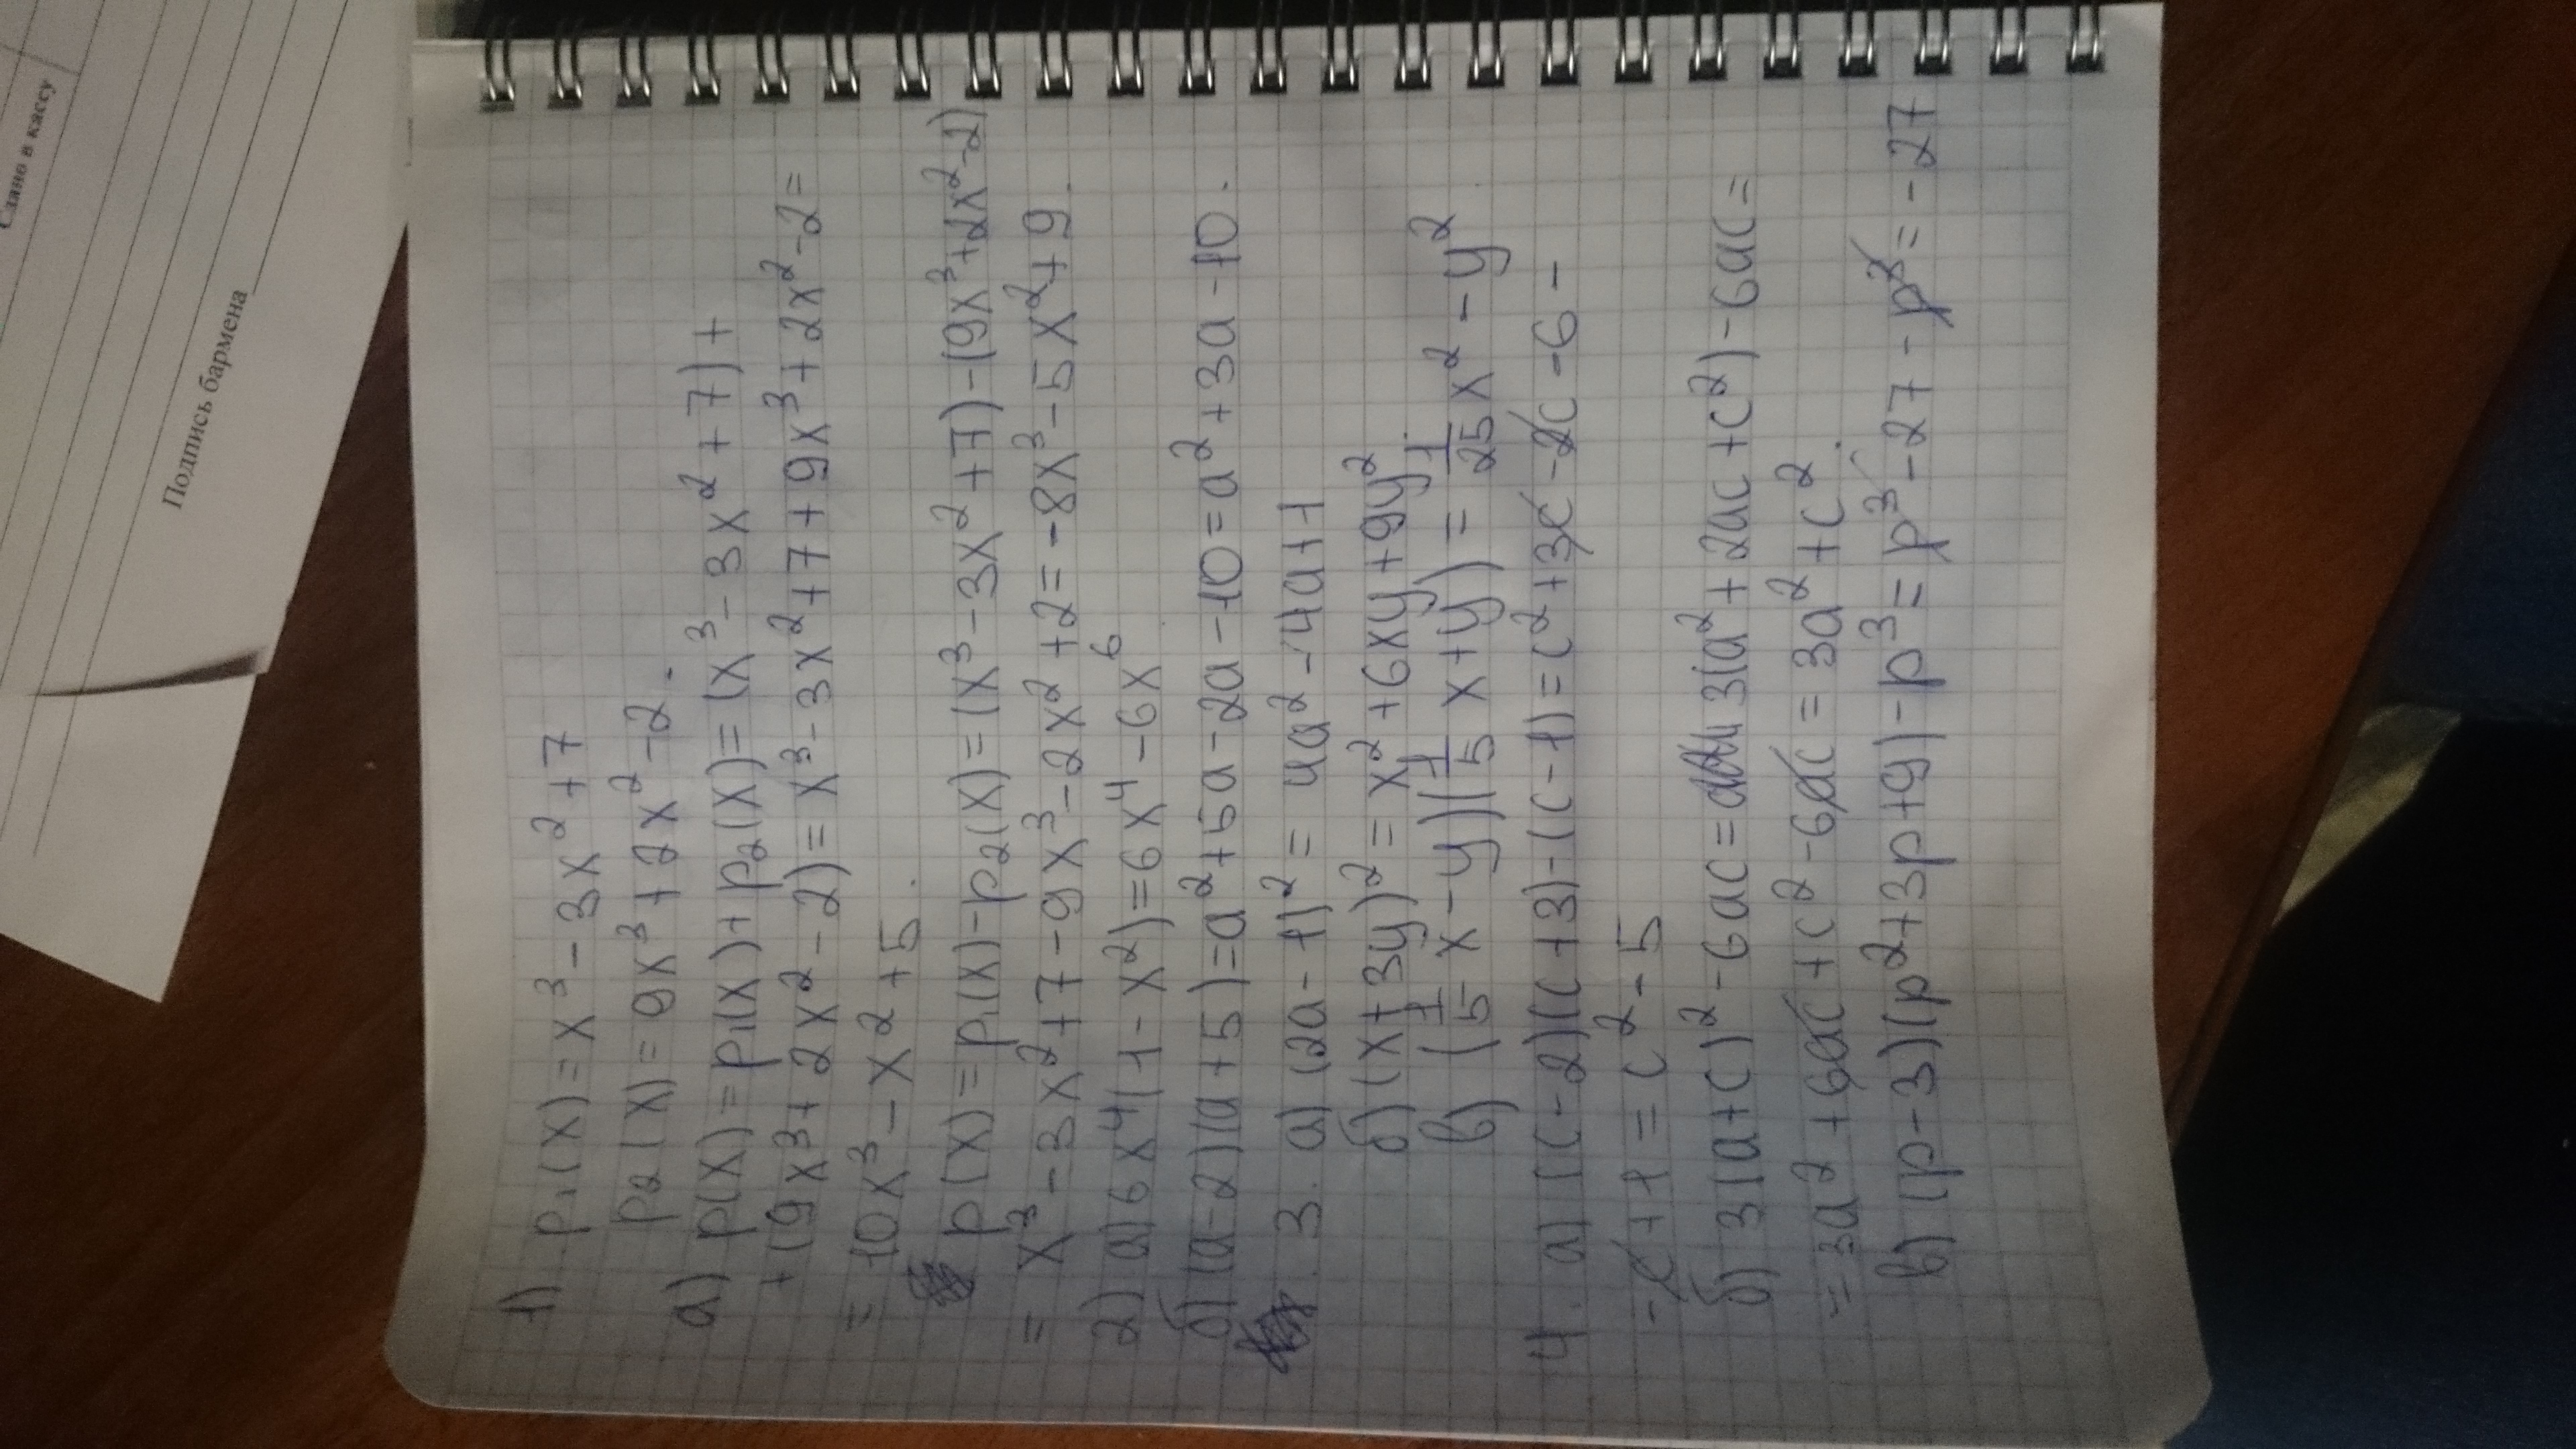 Сдано в кассу
Подпись бармена
1) p₁(x) = x³ - 3x² + 7
p₂(x) = 9x³ + 2x² - 2.
a) p(x) = p₁(x) + p₂(x) = (x³ - 3x² + 7) +
+ (9x³ + 2x² - 2) = x³ - 3x² + 7 + 9x³ + 2x² - 2 =
= 10x³ - x² + 5.
p(x) = p₁(x) - p₂(x) = (x³ - 3x² + 7) - (9x³ + 2x² - 2)
= x³ - 3x² + 7 - 9x³ - 2x² + 2 = -8x³ - 5x² + 9.
2) a) 6x⁴(1 - x²) = 6x⁴ - 6x⁶
б) (a - 2)(a + 5) = a² + 5a - 2a - 10 = a² + 3a - 10.
3. a) (2a - 1)² = 4a² - 4a + 1
б) (x + 3y)² = x² + 6xy + 9y²
в) (1/5 x - y)(1/5 x + y) = 1/25 x² - y²
4. a) (c - 2)(c + 3) - (c - 1) = c² + 3c - 2c - 6 -
- c + 1 = c² - 5
б) 3(a + c)² - 6ac = 3(a² + 2ac + c²) - 6ac =
= 3a² + 6ac + c² - 6ac = 3a² + c².
в) (p - 3)(p² + 3p + 9) - p³ = p³ - 27 - p³ = -27